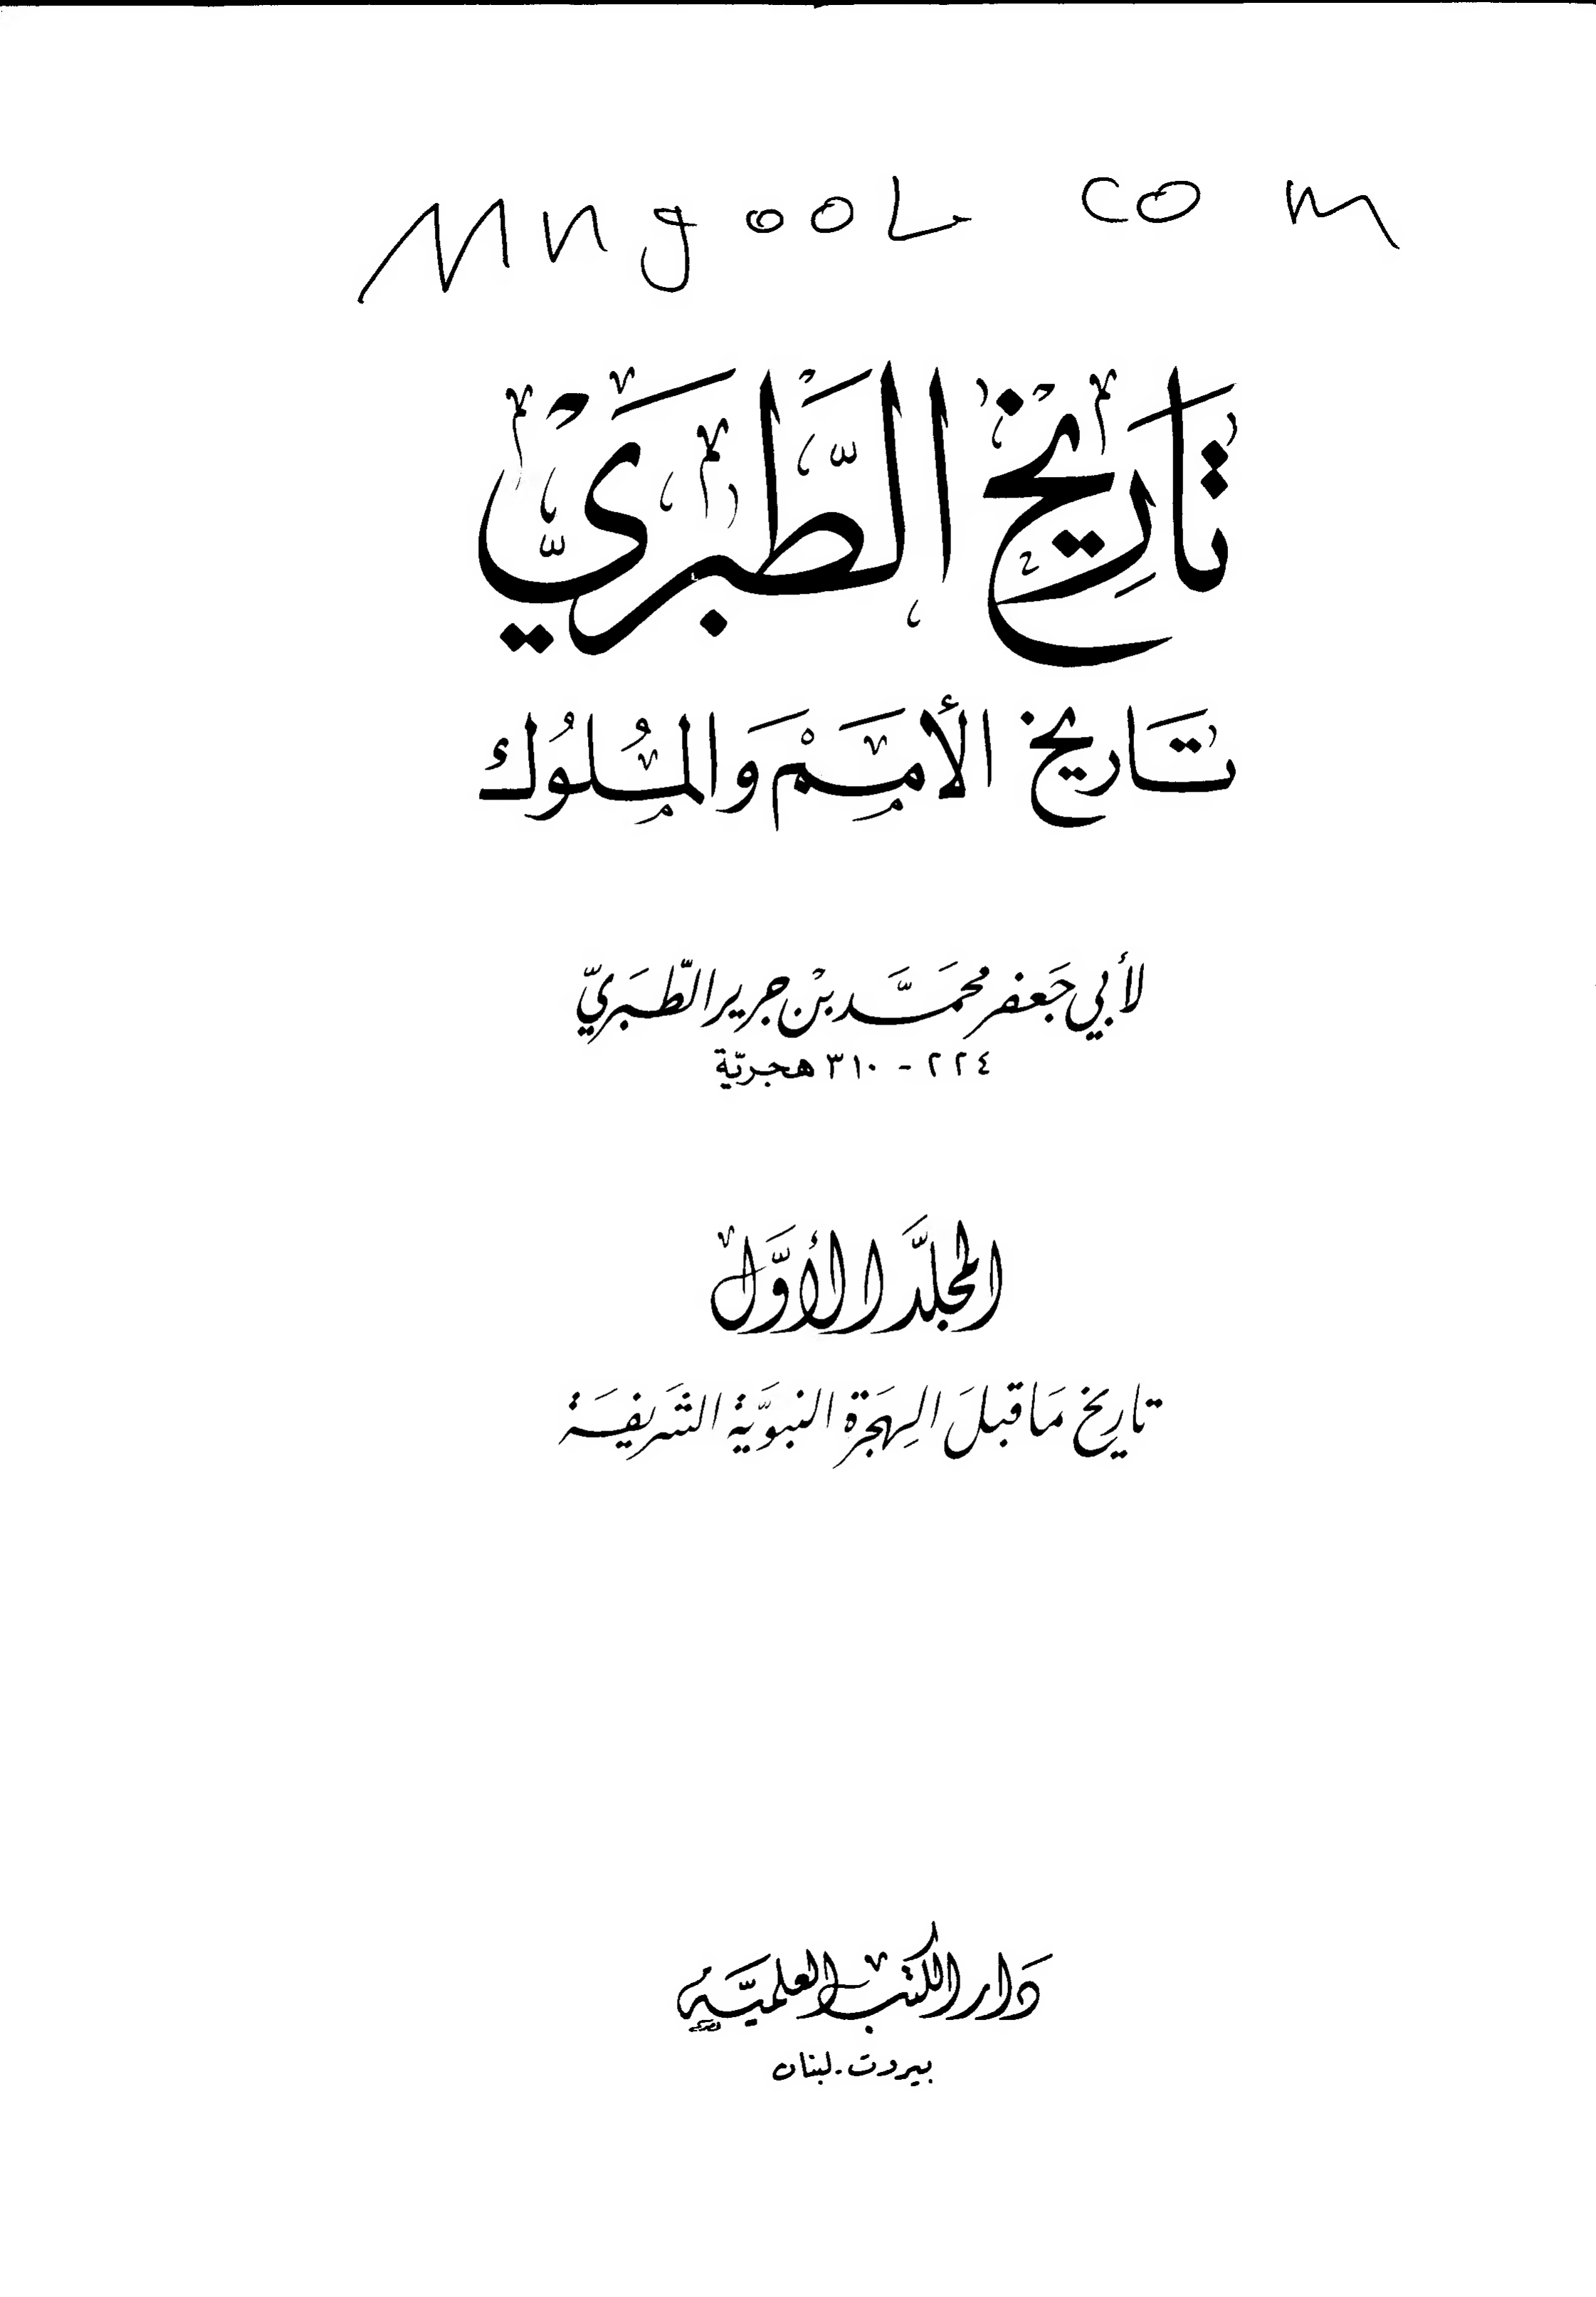 Mngool com
تَارِيخُ الطَّبَرِيّ
تَاريخ الأمَمْ وَالمُلُوك
لأبي جَعفر محمَّد بنْ جرير الطَّبَريّ
٢٢٤ - ٣١٠ هجريّة
المجلَّد الأوَّل
تاريخ مَا قبلَ الهِجَرة النبوَّية الشَريفَة
دَار الكتب العلميَّة
بيروت - لبنان